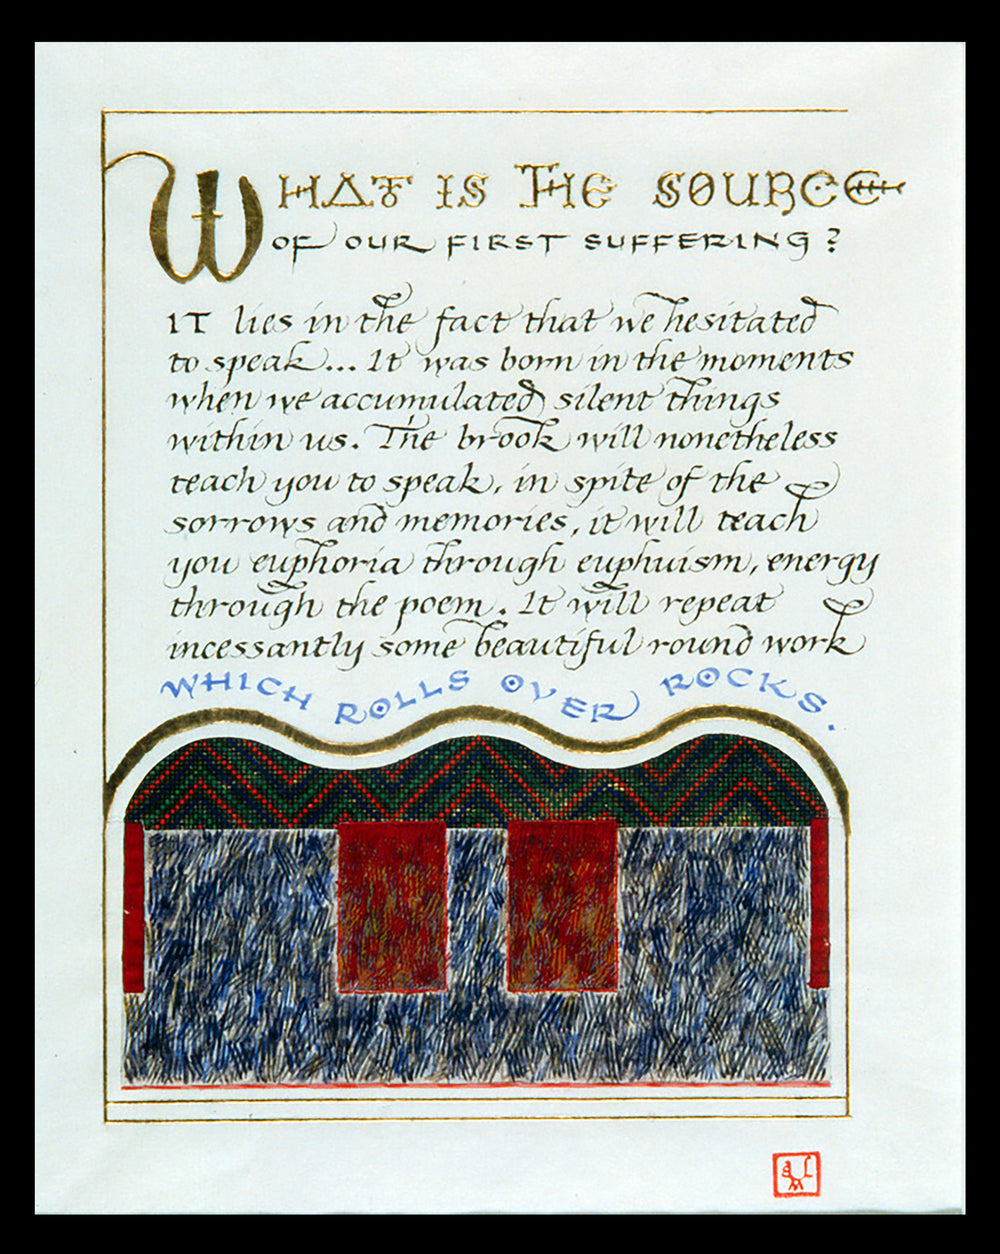 WHAT IS THE SOURCE
OF OUR FIRST SUFFERING?
IT lies in the fact that we hesitated
to speak... It was born in the moments
when we accumulated silent things
within us. The brook will nonetheless
teach you to speak, in spite of the
sorrows and memories, it will teach
you euphoria through euphuism, energy
through the poem. It will repeat
incessantly some beautiful round work
WHICH ROLLS OVER ROCKS.